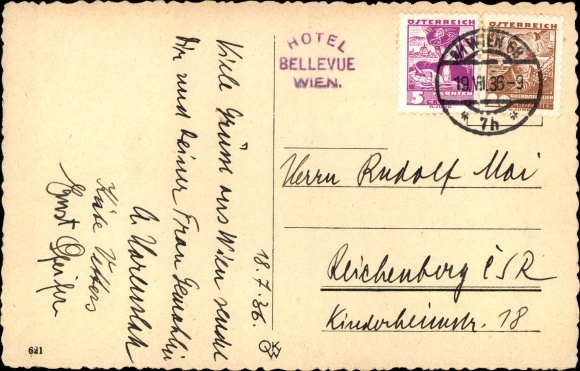 HOTEL
BELLEVUE
WIEN.
ÖSTERREICH
ÖSTERREICH
5
KÄRNTEN
WIEN 68
19.VII.36-9
* 7h *
18.7.36.
Viele Grüsse aus Wien sendet
Dir und Deiner Frau Gemahlin
Käte
Ernst
Herrn Rudolf Mai
Reichenberg ČSR
Kinderheimstr. 18
621